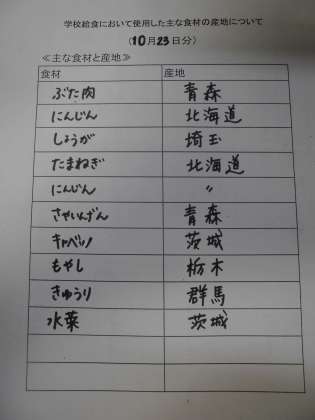 学校給食において使用した主な食材の産地について
(10月23日分)
≪主な食材と産地≫
食材 産地
ぶた肉 青森
にんじん 北海道
しょうが 埼玉
たまねぎ 北海道
にんじん 〃
さやいんげん 青森
キャベツ 茨城
もやし 栃木
きゅうり 群馬
水菜 茨城